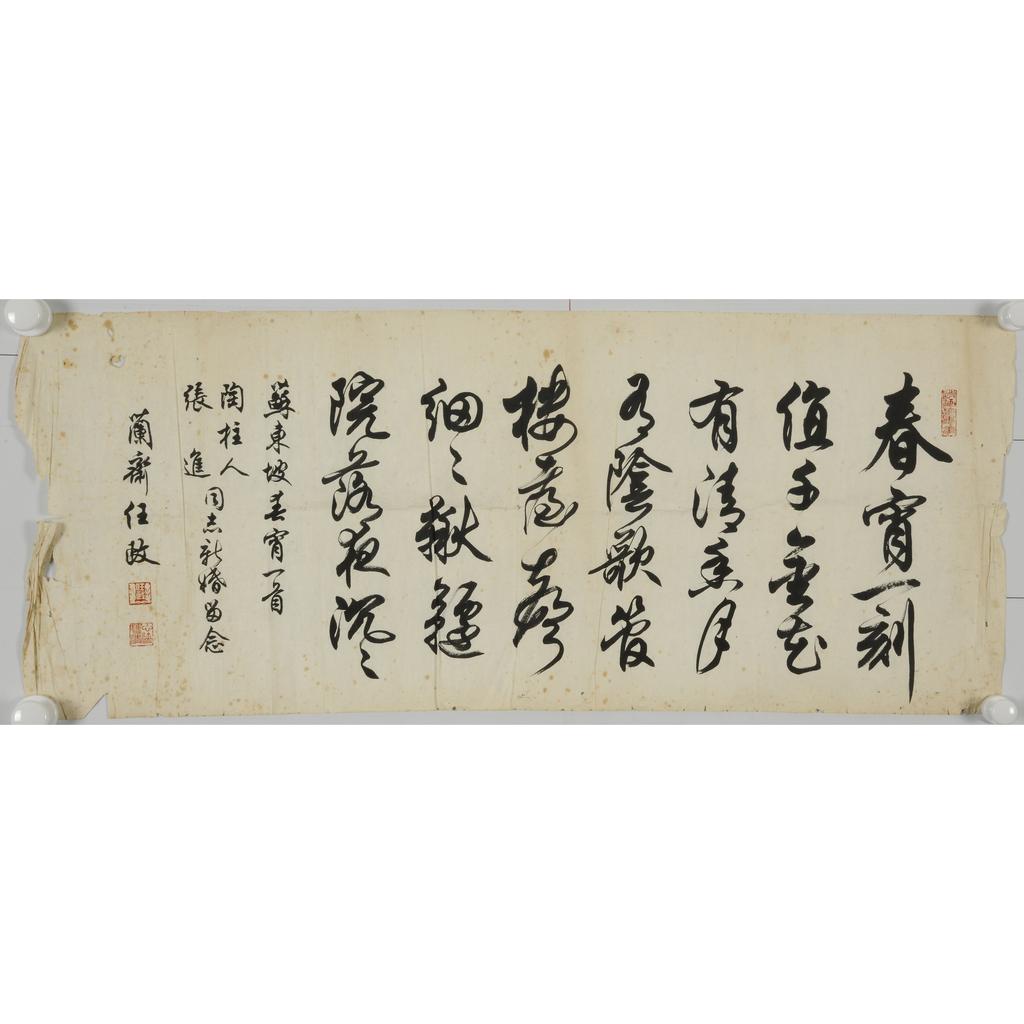 春宵一刻
值千金花
有清香月
有陰歌管
樓臺聲
細〻鞦韆
院落夜沉〻
蘇東坡春宵一首
陶柱人
張進
同志新婚留念
蘭齋任政